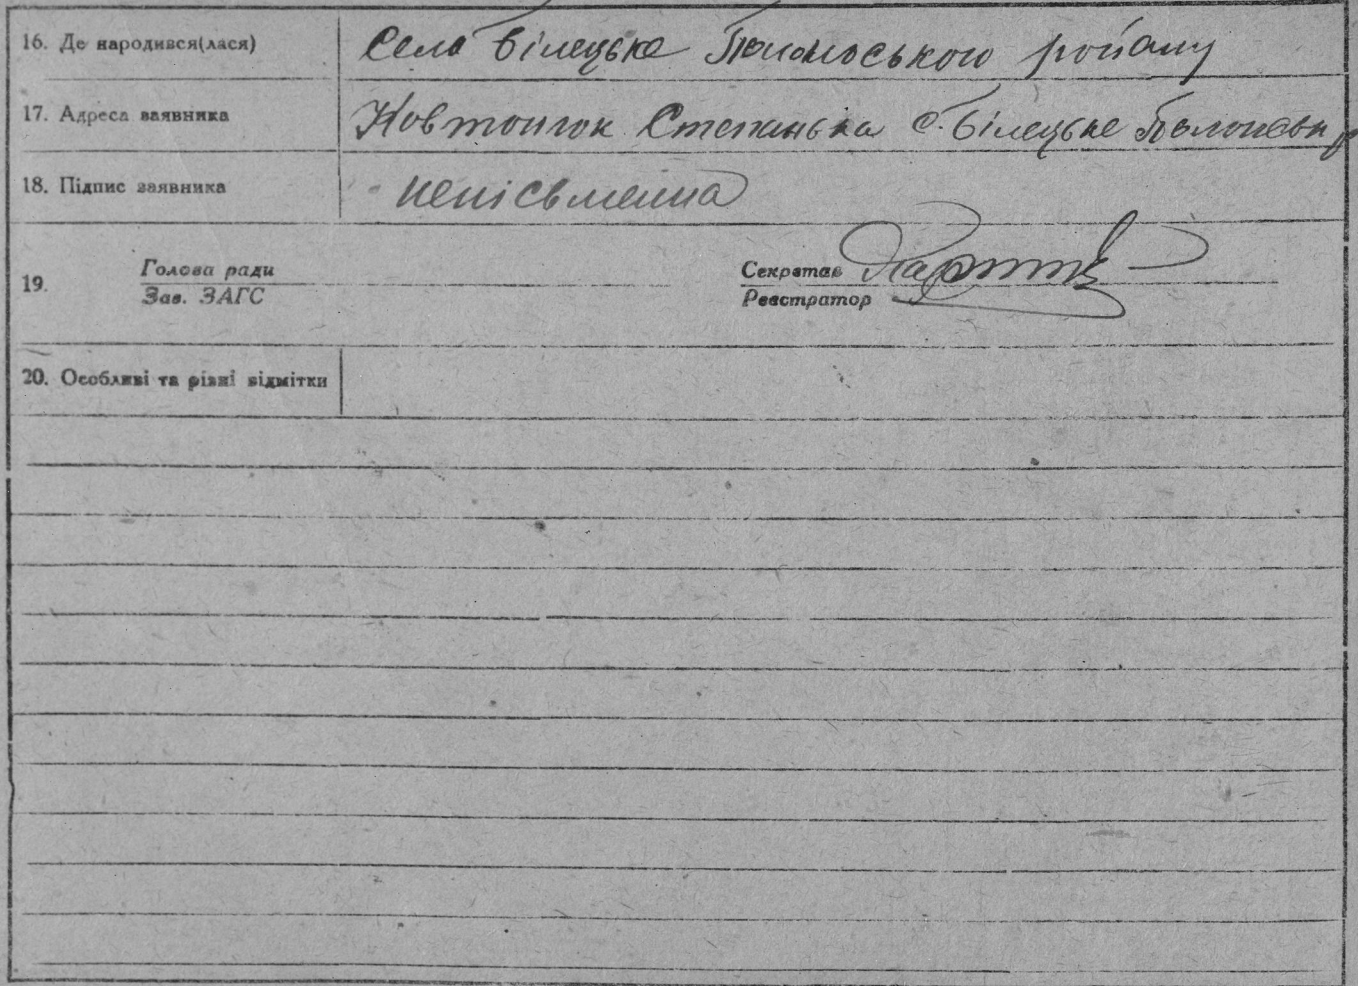 16. Де народився(лася) Села Білецьке Полонського району
17. Адреса заявника Ковтонюк Степанька с. Білецьке Полонськ р
18. Підпис заявника неписьменна
19. Голова ради Секретар
Зав. ЗАГС Реєстратор
20. Особливі та різні відмітки